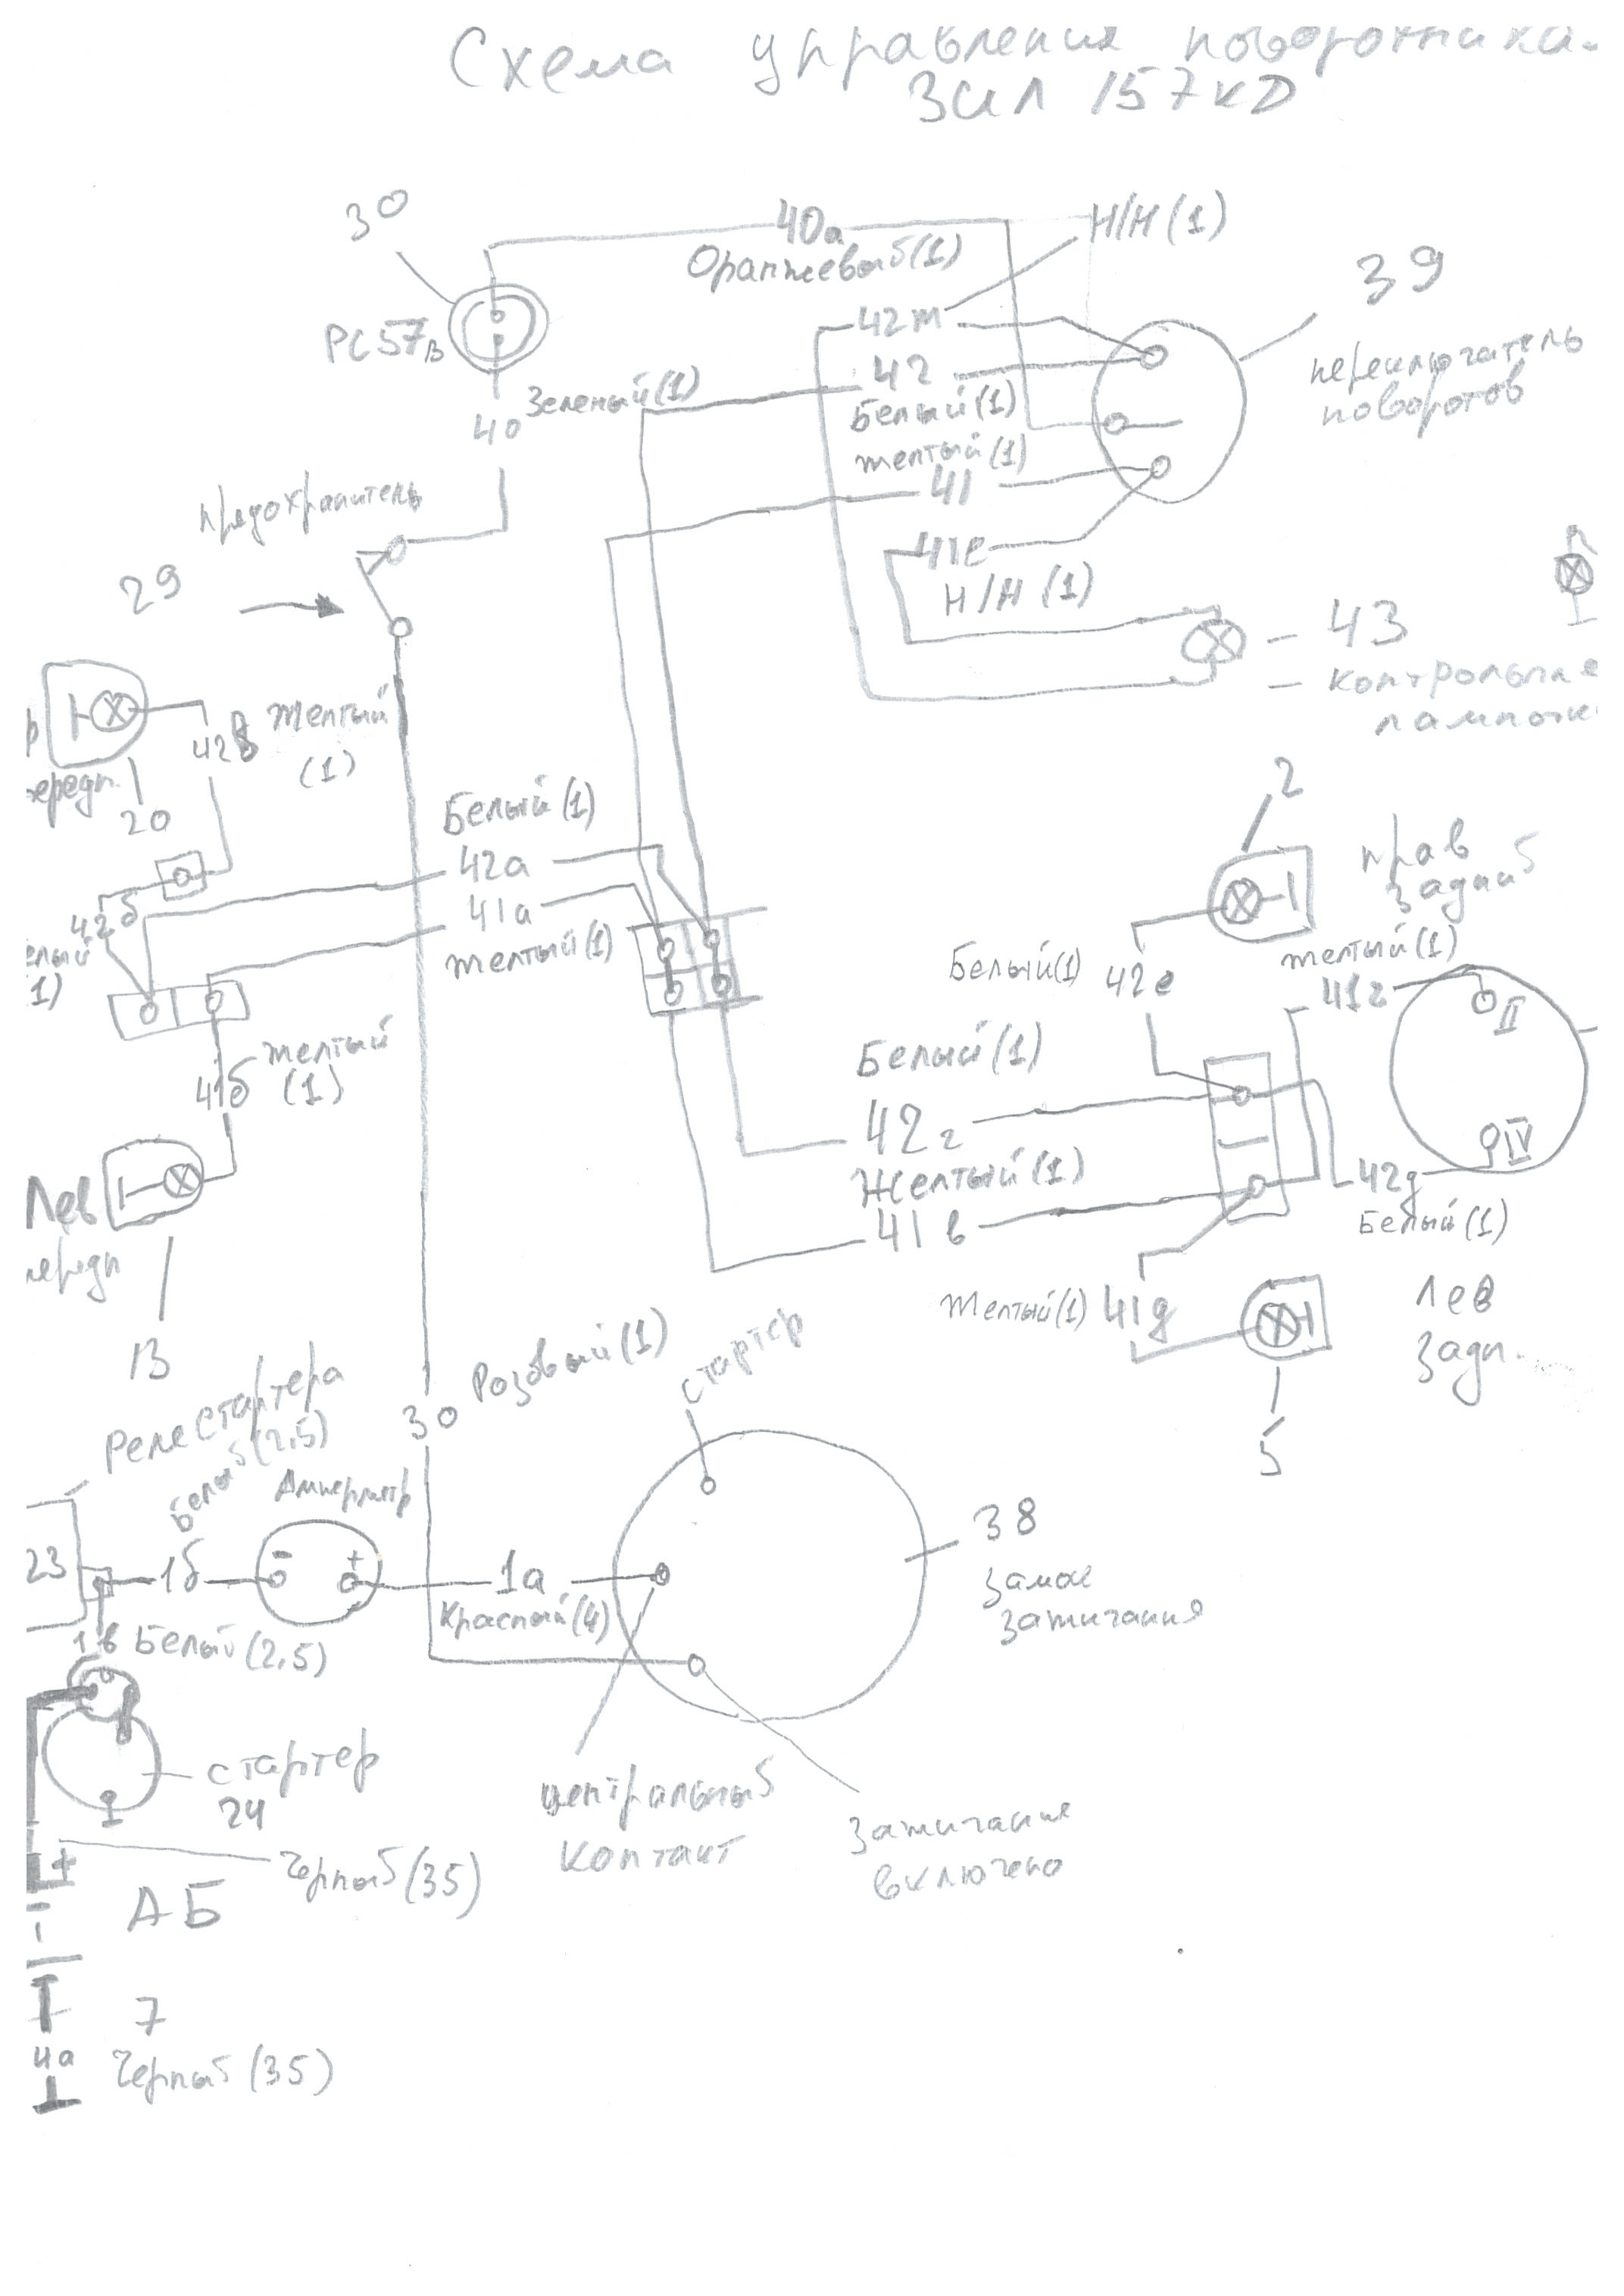 Схема управления поворотника
ЗИЛ 157КД
30
40а
Оранжевый (1)
Н/Н (1)
39
переключатель
поворотов
РС57в
42ж
42
Белый (1)
Зеленый (1)
40
желтый (1)
41
предохранитель
41е
Н/Н (1)
29
43
контрольная
лампочк
42в
Желтый
(1)
передн.
20
2
прав
задний
Белый (1)
42а
41а
желтый (1)
42б
елый
1)
Белый (1)
42е
желтый (1)
41г
II
41б
желтый
(1)
Белый (1)
42г
Желтый (1)
41в
IV
42д
Белый (1)
Лев
передн
13
Желтый (1)
41д
Лев
задн.
5
Реле стартера
Белый (2,5)
Амперметр
30
Розовый (1)
стартер
38
замок
зажигания
23
1б
-
+
1а
Красный (4)
1в
Белый (2,5)
стартер
24
центральный
контакт
зажигание
включено
Черный (35)
+
-
АБ
7
4а
Черный (35)